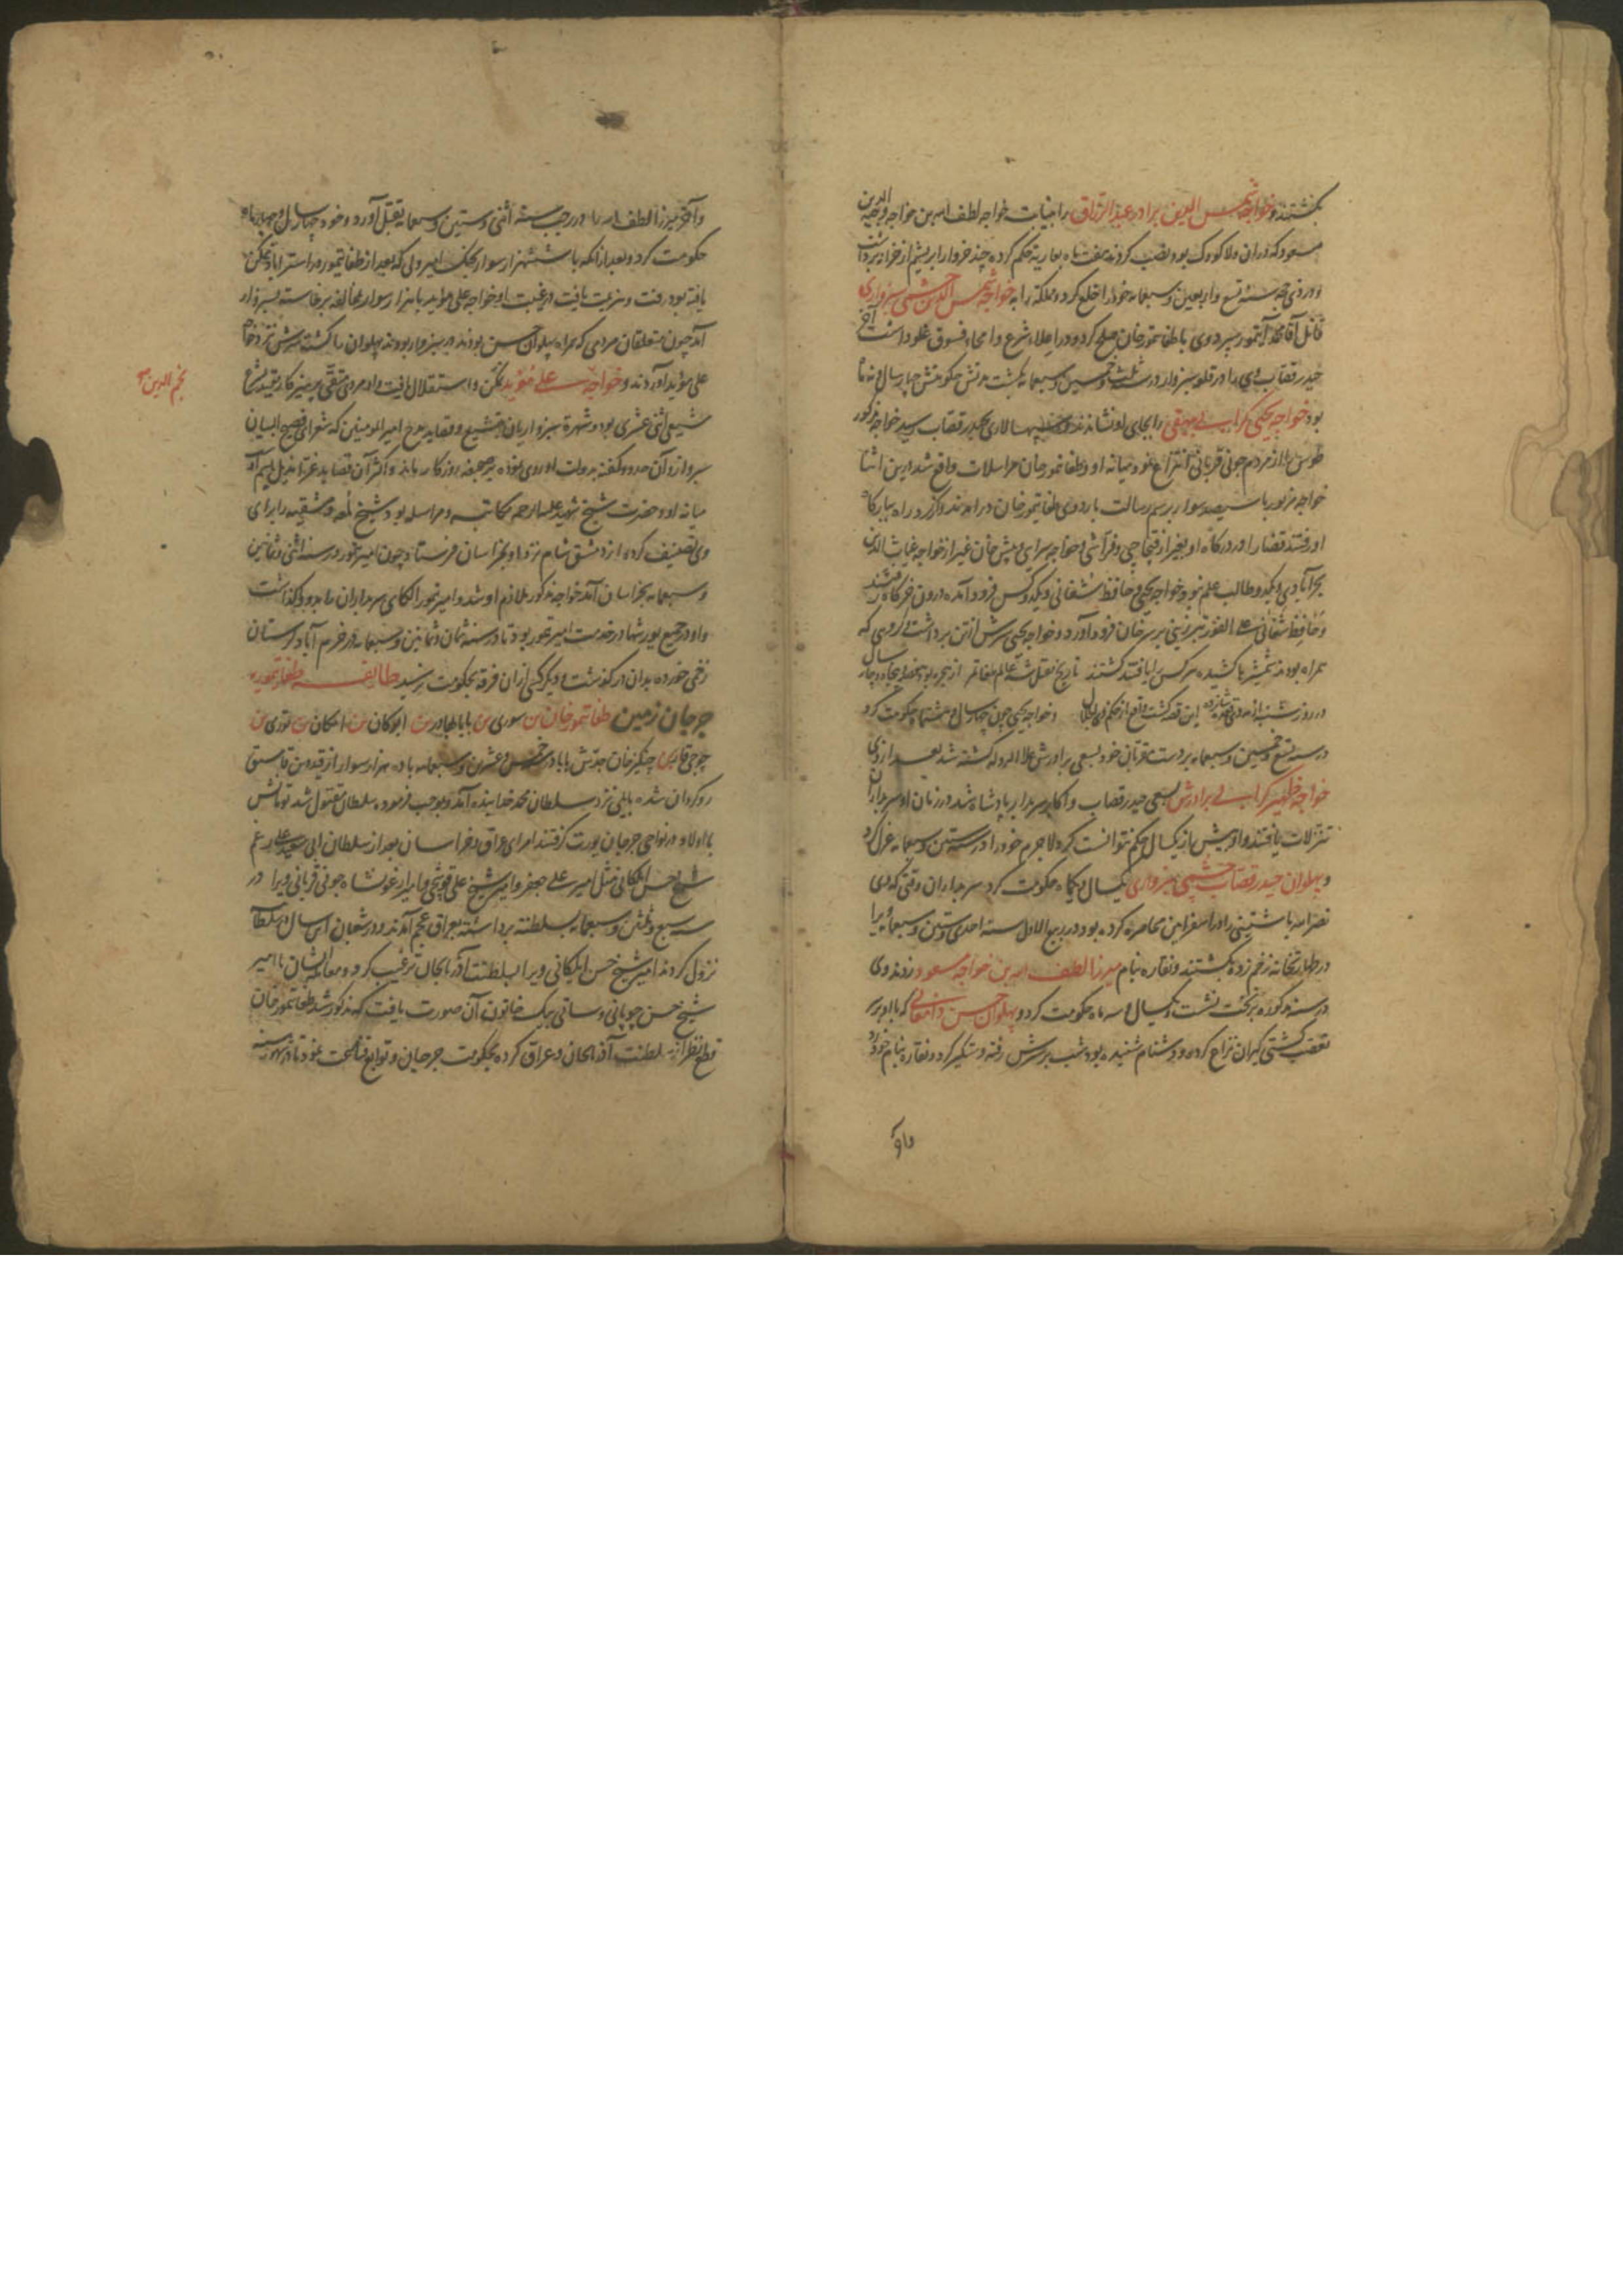 بکشتند و خواجه شمس الدین برادر عبد الرزاق را بنیابت خواجه لطف الله بن خواجه وجیه الدین
مسعود که در ان ولا کودک بود نصب کردند هفت ماه بعاریه حکم کرده چند خروار ابریشم از خزانه برداشت
و در ذی حجه سنه تسع و اربعین و سبعمایه خود را خلع کرد و مملکه را به خواجه شمس الدین چشمی سبزواری
قاتل آقا محمد آیتمور سپرد وی با طغاتیمور خان صلح کرد و در اعلاء شرع و امحاء فسوق غلو داشت آخر
حیدر قصاب وی را در قلعه سبزوار در سنه ثلث و خمسین و سبعمایه بکشت مدتش حکومتش چهار سال و نه ماه
بود خواجه یحیی کرابی بیهقی را بجای او نشاندند و سپهسالاری بحیدر قصاب رسید خواجه مذکور
طوس را از مردم جونی قربانی انتزاع نمود میانه او و طغاتمور خان مراسلات واقع شد درین اثنا
خواجه مزبور با سیصد سوار برسم رسالت باردوی طغاتیمور خان درامدند و از گرد راه ببارگاه
او رفتند قضا را در درگاه او بغیر از قیجاچی و فراشی و خواجه سرای پیش خان غیر از خواجه غیاث الدین
بحرآبادی و یکدو طالب علم نبود خواجه یحیی و حافظ شغانی و یکدو کس فرود آمده درون خرگاه رفتند
و حافظ شغانی علی الفور تبرزینی بر سر خان فرود آورد و خواجه یحیی سرش از تن برداشت گروهی که
همراه بودند شمشیرها کشیده هر کس را یافتند کشتند تاریخ مقتل شه عالم طغاتمر از هجره بود هفصد و پنجاه و چار سال
در روز شنبه از مه ذی قعده شانزده این قصه گشت واقع از حکم ذی الجلال و خواجه یحیی چون چهار سال و هشتماه حکومت کرد
در سنه تسع و خمسین و سبعمایه بر دست مقربان خود بسعی برادرش علاء الدوله کشته شد بعد از وی
خواجه ظهیر کرابی برادرش بسعی حیدر قصاب و اکابر سربدار پادشاه شد در زمان او سربداران
تنزلات یافتند و او بیش از یکسال حکم نتوانست کرد لاجرم خود را در سنه ستین و سبعمایه عزل کرد
و پهلوان حیدر قصاب چشمی سبزواری یکسال و یکماه حکومت کرد سربداران وقتی که وی
نصرالله باشتینی را در اسفراین محاصره کرده بود در ربیع الاول سنه احدی و ستین و سبعمایه ویرا
در طهارتخانه زخم زده بکشتند و نقاره بنام میرزا لطف الله بن خواجه مسعود زدند وی
در سنه مذکوره بر تخت نشست و یکسال و سه ماه حکومت کرد و پهلوان حسن دامغانی که با او بر سر
تعصب کشتی گیران نزاع کرده و دشنام شنیده بود شب بر سرش رفته دستگیر کرد و نقاره بنام خود زد
واو
وآخر میرزا لطف الله را در رجب سنه اثنی و ستین و سبعمایه بقتل آورد و خود چهار سال و چهار ماه
حکومت کرد و بعد از انکه با ششهزار سوار بجنک امیر ولی که بعد از طغاتیمور در استراباد تمکن
یافته بود رفت و هزیمت یافت در غیبت او خواجه علی موید با هزار سوار مخالفه برخاسته بسبزوار
آمد چون متعلقان مردمی که همراه پهلوان حسن بودند در سبزوار بودند پهلوان را کشته سرش نزد خواجه
علی مؤید آوردند و خواجه علی مؤید تمکن و استقلال یافت و او مردی متقی پرهیزکار بود
شیعی اثنی عشری بود و شهره سبزواریان بتشیع و قصاید مدح امیر المومنین که شعرای فصیح البیان
سبزوار و آن حدود گفته بدولت او روی نموده بر صحیفه روزگار ماند و اکثر آن قصاید غرا مذیل باسم او
میانه او و حضرت شیخ شهید علیه الرحمه مکاتبه و مراسله بود شیخ لمعه دمشقیه را برای
وی تصنیف کرده از دمشق شام نزد او بخراسان فرستاد چون امیر تیمور در سنه اثنی و ثمانین
و سبعمایه بخراسان آمد خواجه مذکور ملازم او شد و امیر تیمور الکای سربداران را بدو گذاشت
و او در جمیع یورشها در خدمت امیر تیمور بود تا در سنه ثمان و ثمانین و سبعمایه در خرم آباد لرستان
زخمی خورده بدان درگذشت و دیگر کسی از ان فرقه بحکومت نرسید طایفه طغاتیموریه
جرجان زمین طغاتمور خان بن سوری بن بابا بهادر بن ابوکان بن امکان بن توری بن
جوجی قار بن چنگیز خان جدش بابا در خمس و عشرین و سبعمایه با ده هزار سوار از قیدو بن قاسی
روگردان شده باایلی نزد سلطان محمد خدابنده آمد و بموجب فرموده سلطان مقتول شد توابش
با اولاد در نواحی جرجان یورت گرفتند امرای عراق و خراسان بعد از سلطان ابی سعید علی رغم
شیخ حسن ایلکانی مثل امیر علی جعفر و امیر شیخ علی قوشچی و امیر ارغونشاه جونی قربانی ویرا در
سنه سبع و ثلثین و سبعمایه بسلطنه برداشته بعراق عجم آمدند در شعبان این سال در سلطانیه
نزول کردند امیر شیخ حسن ایلکانی ویرا بسلطنت آذربایجان ترغیب کرد و معامله ایشان با امیر
شیخ حسن چوپانی و ساتی بیک خاتون آن صورت یافت که مذکور شد طغاتمور خان
قطع نظر از سلطنت آذربایجان و عراق کرده بحکومت جرجان و توابع قناعت نمود تا در شهور سنه
نجم الدین